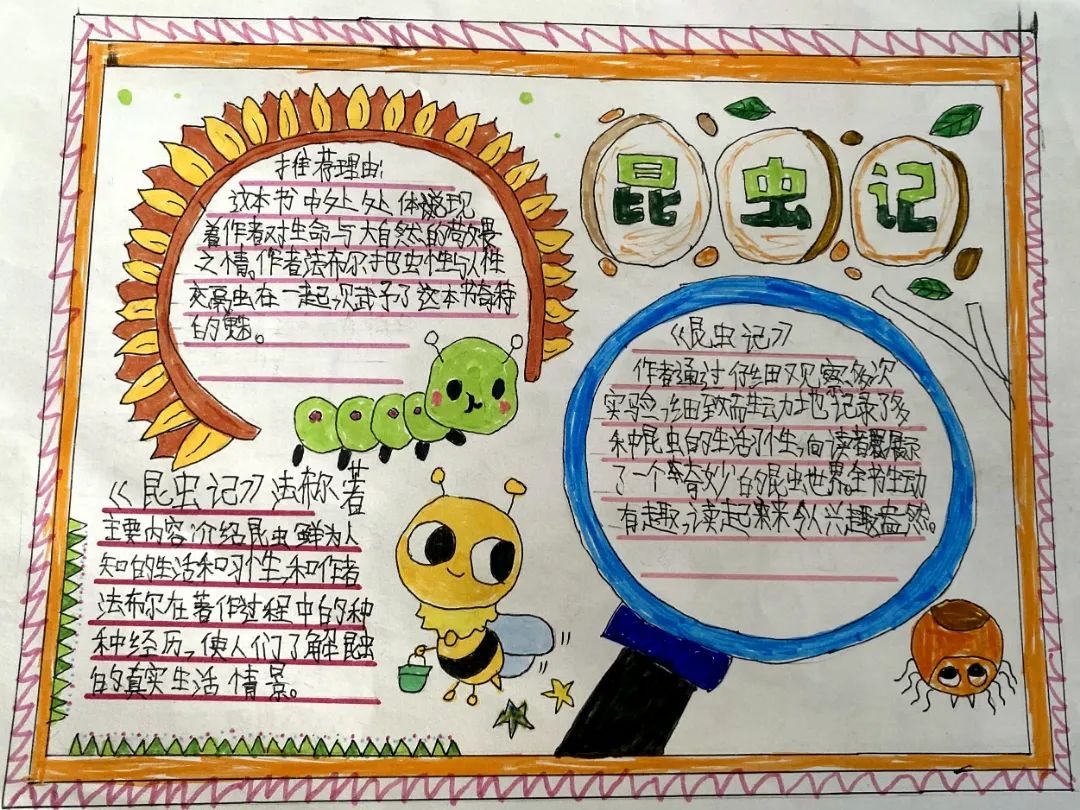 昆虫记
推荐理由:
这本书中处处体现
着作者对生命与大自然的敬畏
之情。作者法布尔把虫性与人性
交融在一起,赋予了这本书奇特
的魅。
《昆虫记》法布尔著
主要内容:介绍昆虫鲜为人
知的生活和习性,和作者
法布尔在著作过程中的种
种经历,使人们了解昆虫
的真实生活情景。
《昆虫记》
作者通过仔细观察,多次
实验,细致而生动地记录了多
种昆虫的生活习性,向读者展示
了一个奇妙的昆虫世界。全书生动
有趣,读起来令人兴趣盎然。